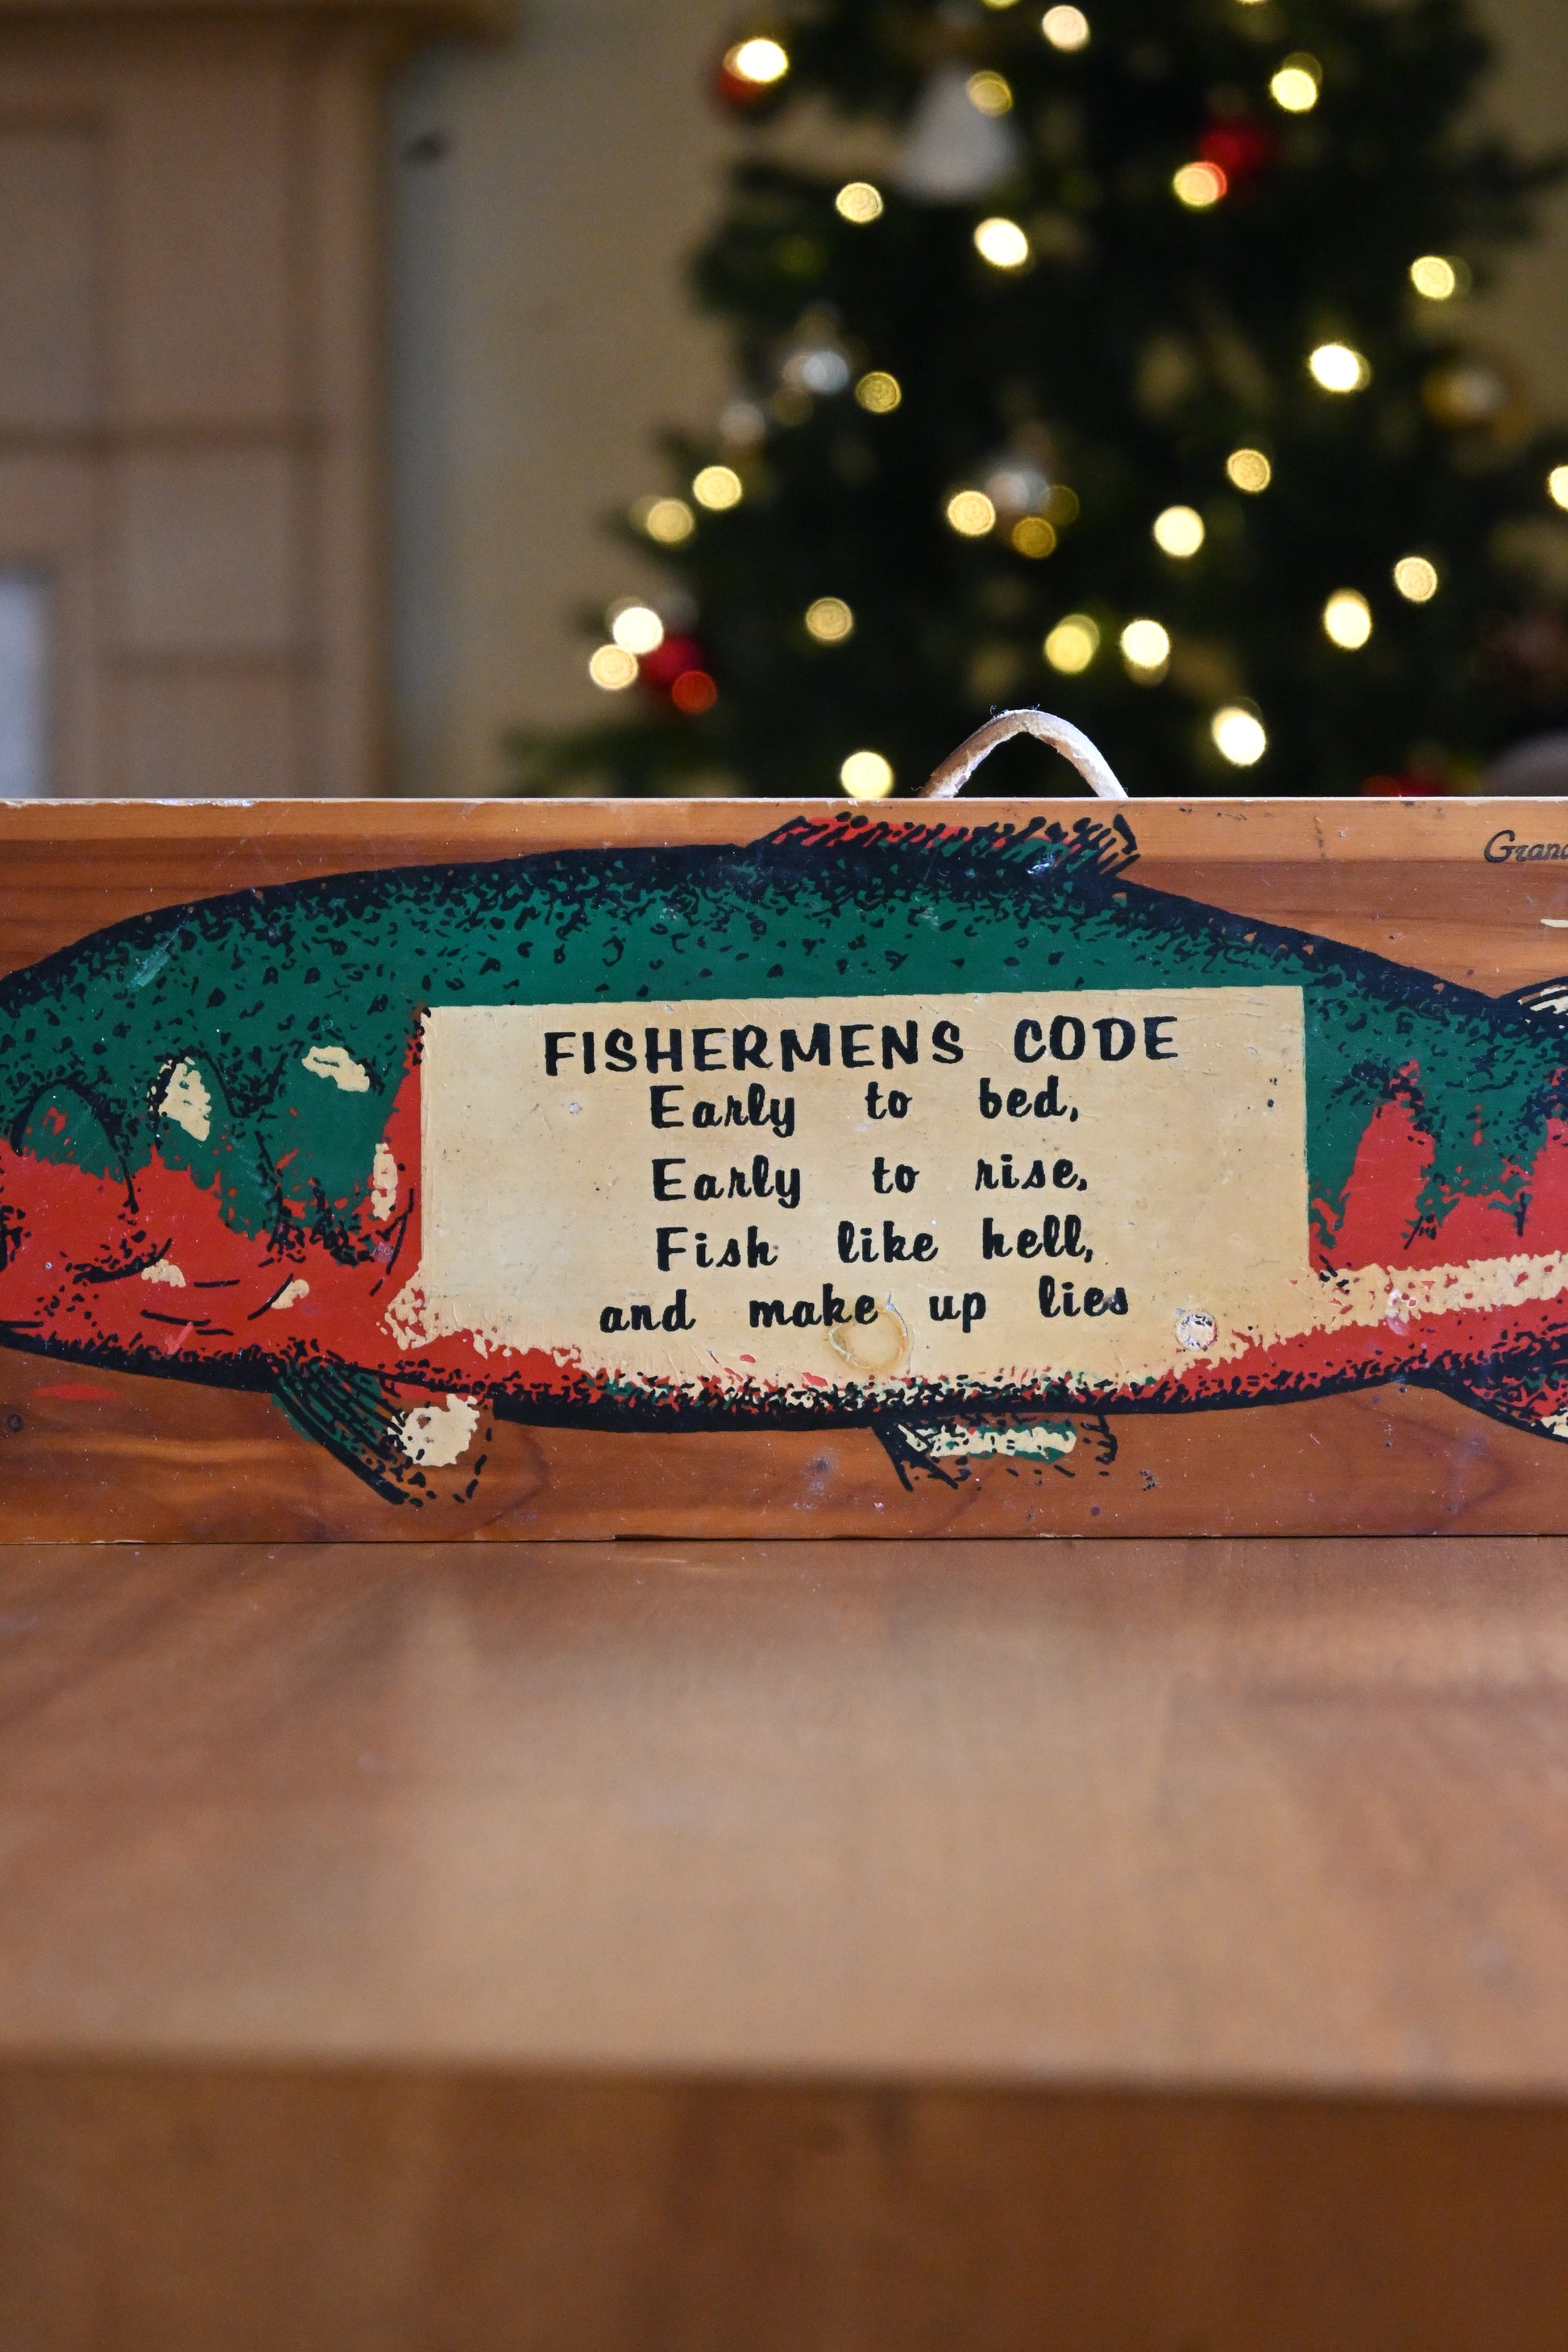 FISHERMENS CODE
Early to bed,
Early to rise,
Fish like hell,
and make up lies